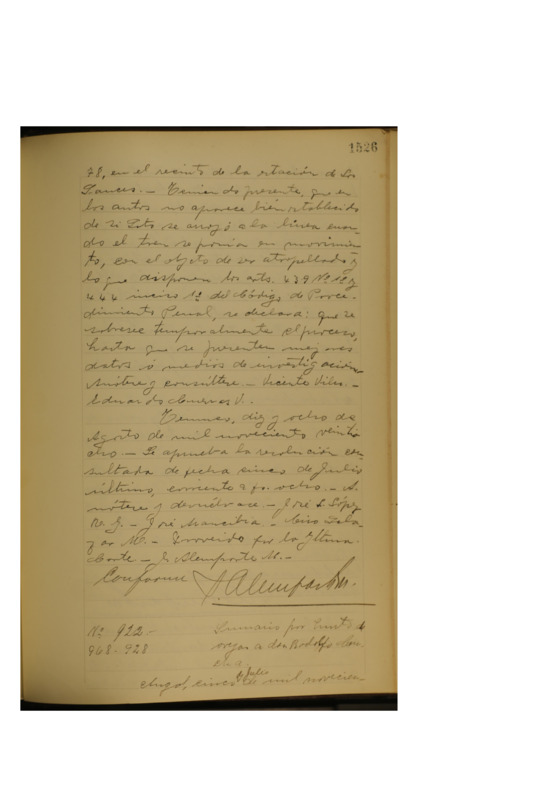 1526
78, en el recinto de la estación de Los
Sauces. — Teniendo presente, que en
los autos no aparece bien establecido
de si Soto se arrojó a la línea cuan-
do el tren se ponía en movimien-
to, con el objeto de ser atropellado y
lo que disponen los arts. 439 Nº 1º y
444 inciso 1º del Código de Proce-
dimiento Penal, se declara: que se
sobresee temporalmente el proceso,
hasta que se presenten mejores
datos o medios de investigación.
Anótese y consúltese. — Vicente Viles. —
Eduardo Cisternas V.
Temuco, diez y ocho de
Agosto de mil novecientos veinti
ocho. — Se aprueba la resolución con
sultada de fecha cinco de Julio
último, corriente a fs. ocho. — A-
nótese y devuélvase. — José L. López
R. G. — José Maucha. — Ciro Sala-
zar M. — Proveído por la Iltma.
Corte. — E. Alemparte M. —
Conforme
Nº 922 —
968-928
Sumario por hurto de
a don Rodolfo
Angol, cinco de Julio de mil novecien